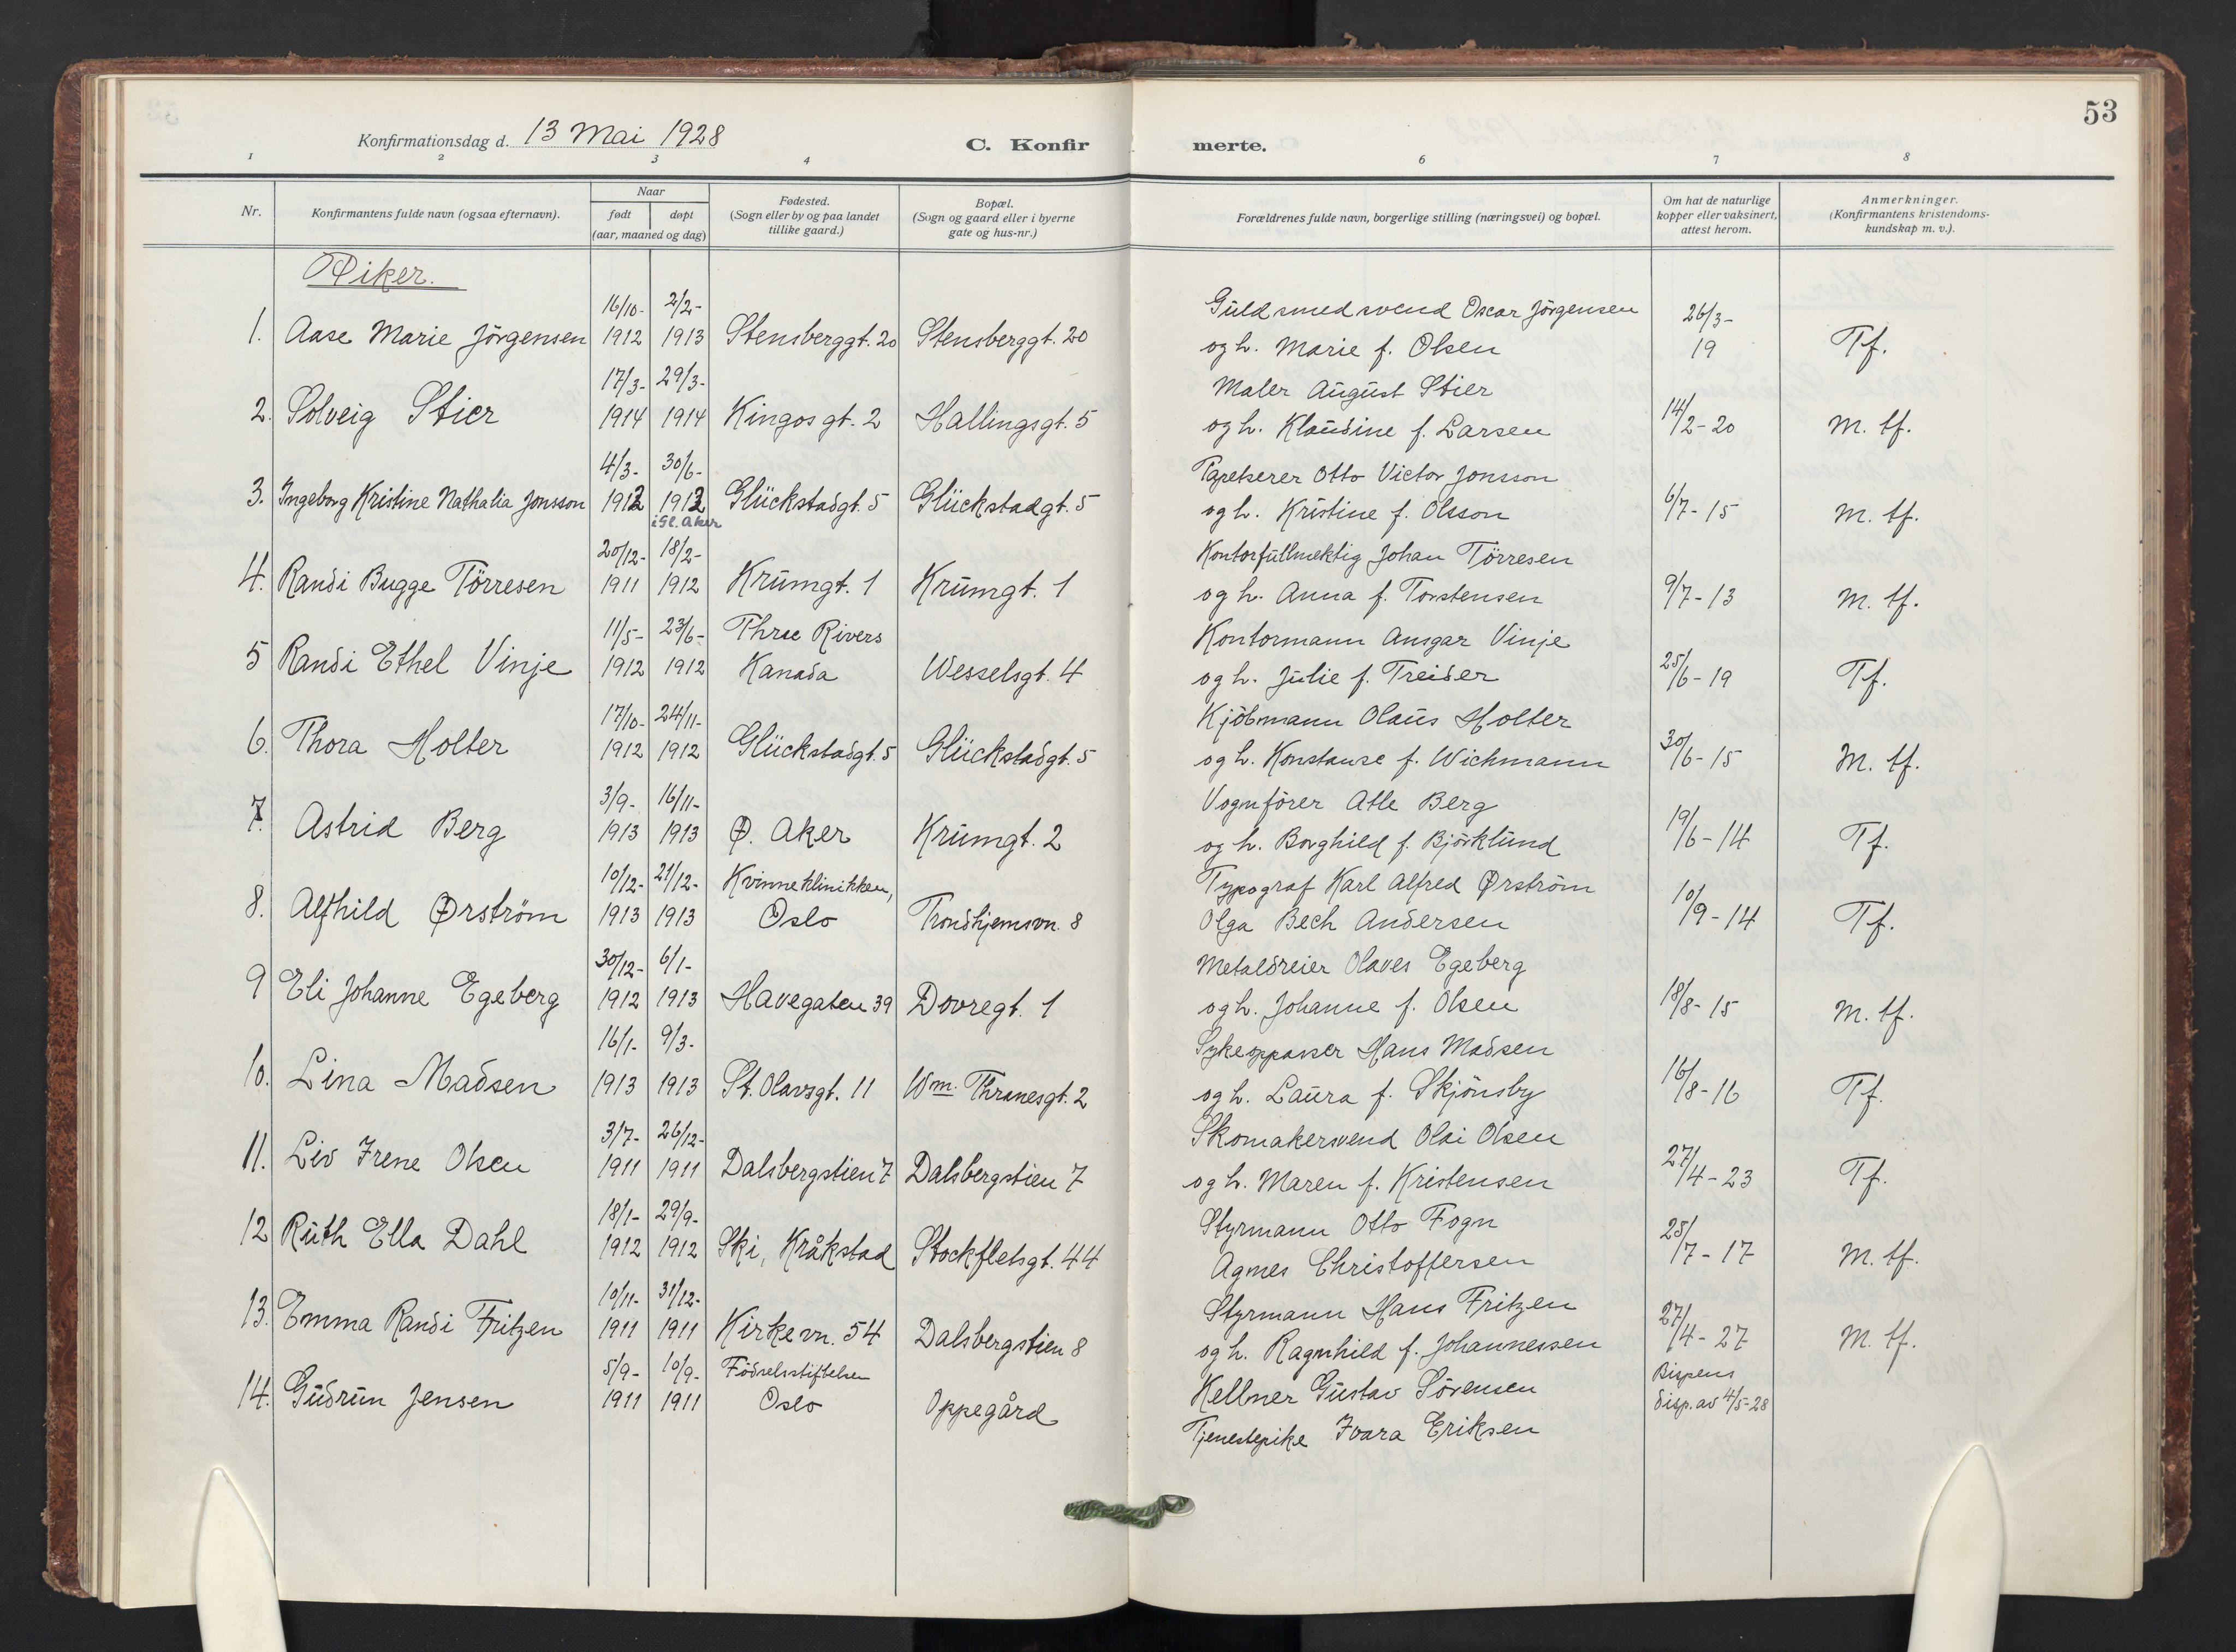 53
Konfirmationsdag d. 13 Mai 1928 C. Konfir merte.
1 2 3 4 6 7 8
Nr. Konfirmantens fulde navn (ogsaa efternavn). Naar født døpt (aar, maaned og dag) Fødested. (Sogn eller by og paa landet tillike gaard.) Bopæl. (Sogn og gaard eller i byerne gate og hus-nr.) Forældrenes fulde navn, borgerlige stilling (næringsvei) og bopæl. Om hat de naturlige kopper eller vaksinert, attest herom. Anmerkninger. (Konfirmantens kristendoms-kundskap m. v.).
Piker.
16/10- 2/2- Guldsmedsvend Oscar Jörgensen 26/3-
1. Aase Marie Jörgensen 1912 1913 Stensberggt. 20 Stensberggt. 20 og h. Marie f. Olsen 19 Tf.
17/3- 29/3- Maler August Stier
2. Solveig Stier 1914 1914 Kingosgt. 2 Hallingsgt. 5 og h. Klaudine f. Larsen 14/2-20 M. tf.
4/3- 30/6- Tapetserer Otto Victor Jonsson
3. Ingeborg Kristine Nathalia Jonsson 1912 1912 Glückstadgt. 5 Glückstadgt. 5 og h. Kristine f. Olsson 6/7-15 M. tf.
i Gl. Aker
20/12- 18/2- Kontorfullmektig Johan Törresen
4. Randi Bugge Törresen 1911 1912 Krumgt. 1 Krumgt. 1 og h. Anna f. Torstensen 9/7-13 M. tf.
11/5- 23/6- Three Rivers Kontormann Ansgar Vinje
5 Randi Ethel Vinje 1912 1912 Kanada Wesselsgt. 4 og h. Julie f. Treider 25/6-19 Tf.
17/10- 24/11- Kjöbmann Olaus Holter
6. Thora Holter 1912 1912 Glückstadgt. 5 Glückstadgt. 5 og h. Konstanse f. Wichmann 30/6-15 M. tf.
3/9- 16/11- Vognförer Atle Berg
7. Astrid Berg 1913 1913 Ø. Aker Krumgt. 2 og h. Borghild f. Björklund 19/6-14 Tf.
10/12- 21/12- Kvinneklinikken, Typograf Karl Alfred Ørström
8. Alfhild Ørström 1913 1913 Oslo Trondhjemsvn. 8 Olga Bech Andersen 10/9-14 Tf.
30/12- 6/1- Metaldreier Olaves Egeberg
9 Eli Johanne Egeberg 1912 1913 Havegaten 39 Dovregt. 1 og h. Johanne f. Olsen 18/8-15 M. tf.
16/1- 9/3- Sykeoppasser Hans Madsen
10. Lina Madsen 1913 1913 St. Olavsgt. 11 Wm. Thranesgt. 2 og h. Laura f. Skjönsby 16/8-16 Tf.
3/7- 26/12- Skomakersvend Olai Olsen
11. Liv Irene Olsen 1911 1911 Dalsbergstien 7 Dalsbergstien 7 og h. Maren f. Kristensen 27/4-23 Tf.
18/1- 29/9- Styrmann Otto Fogn
12 Ruth Ella Dahl 1912 1912 Ski, Kråkstad Stockfletsgt. 44 Agnes Christoffersen 25/7-17 M. tf.
10/11- 31/12- Styrmann Hans Fritzen
13. Emma Randi Fritzen 1911 1911 Kirkevn. 54 Dalsbergstien 8 og h. Ragnhild f. Johannessen 27/4-27 M. tf.
5/9- 10/9- Födselsstiftelsen Kellner Gustav Sörensen Bispens
14. Gudrun Jensen 1911 1911 Oslo Oppegård Tjenestepike Ivara Eriksen disp. av 4/5-28